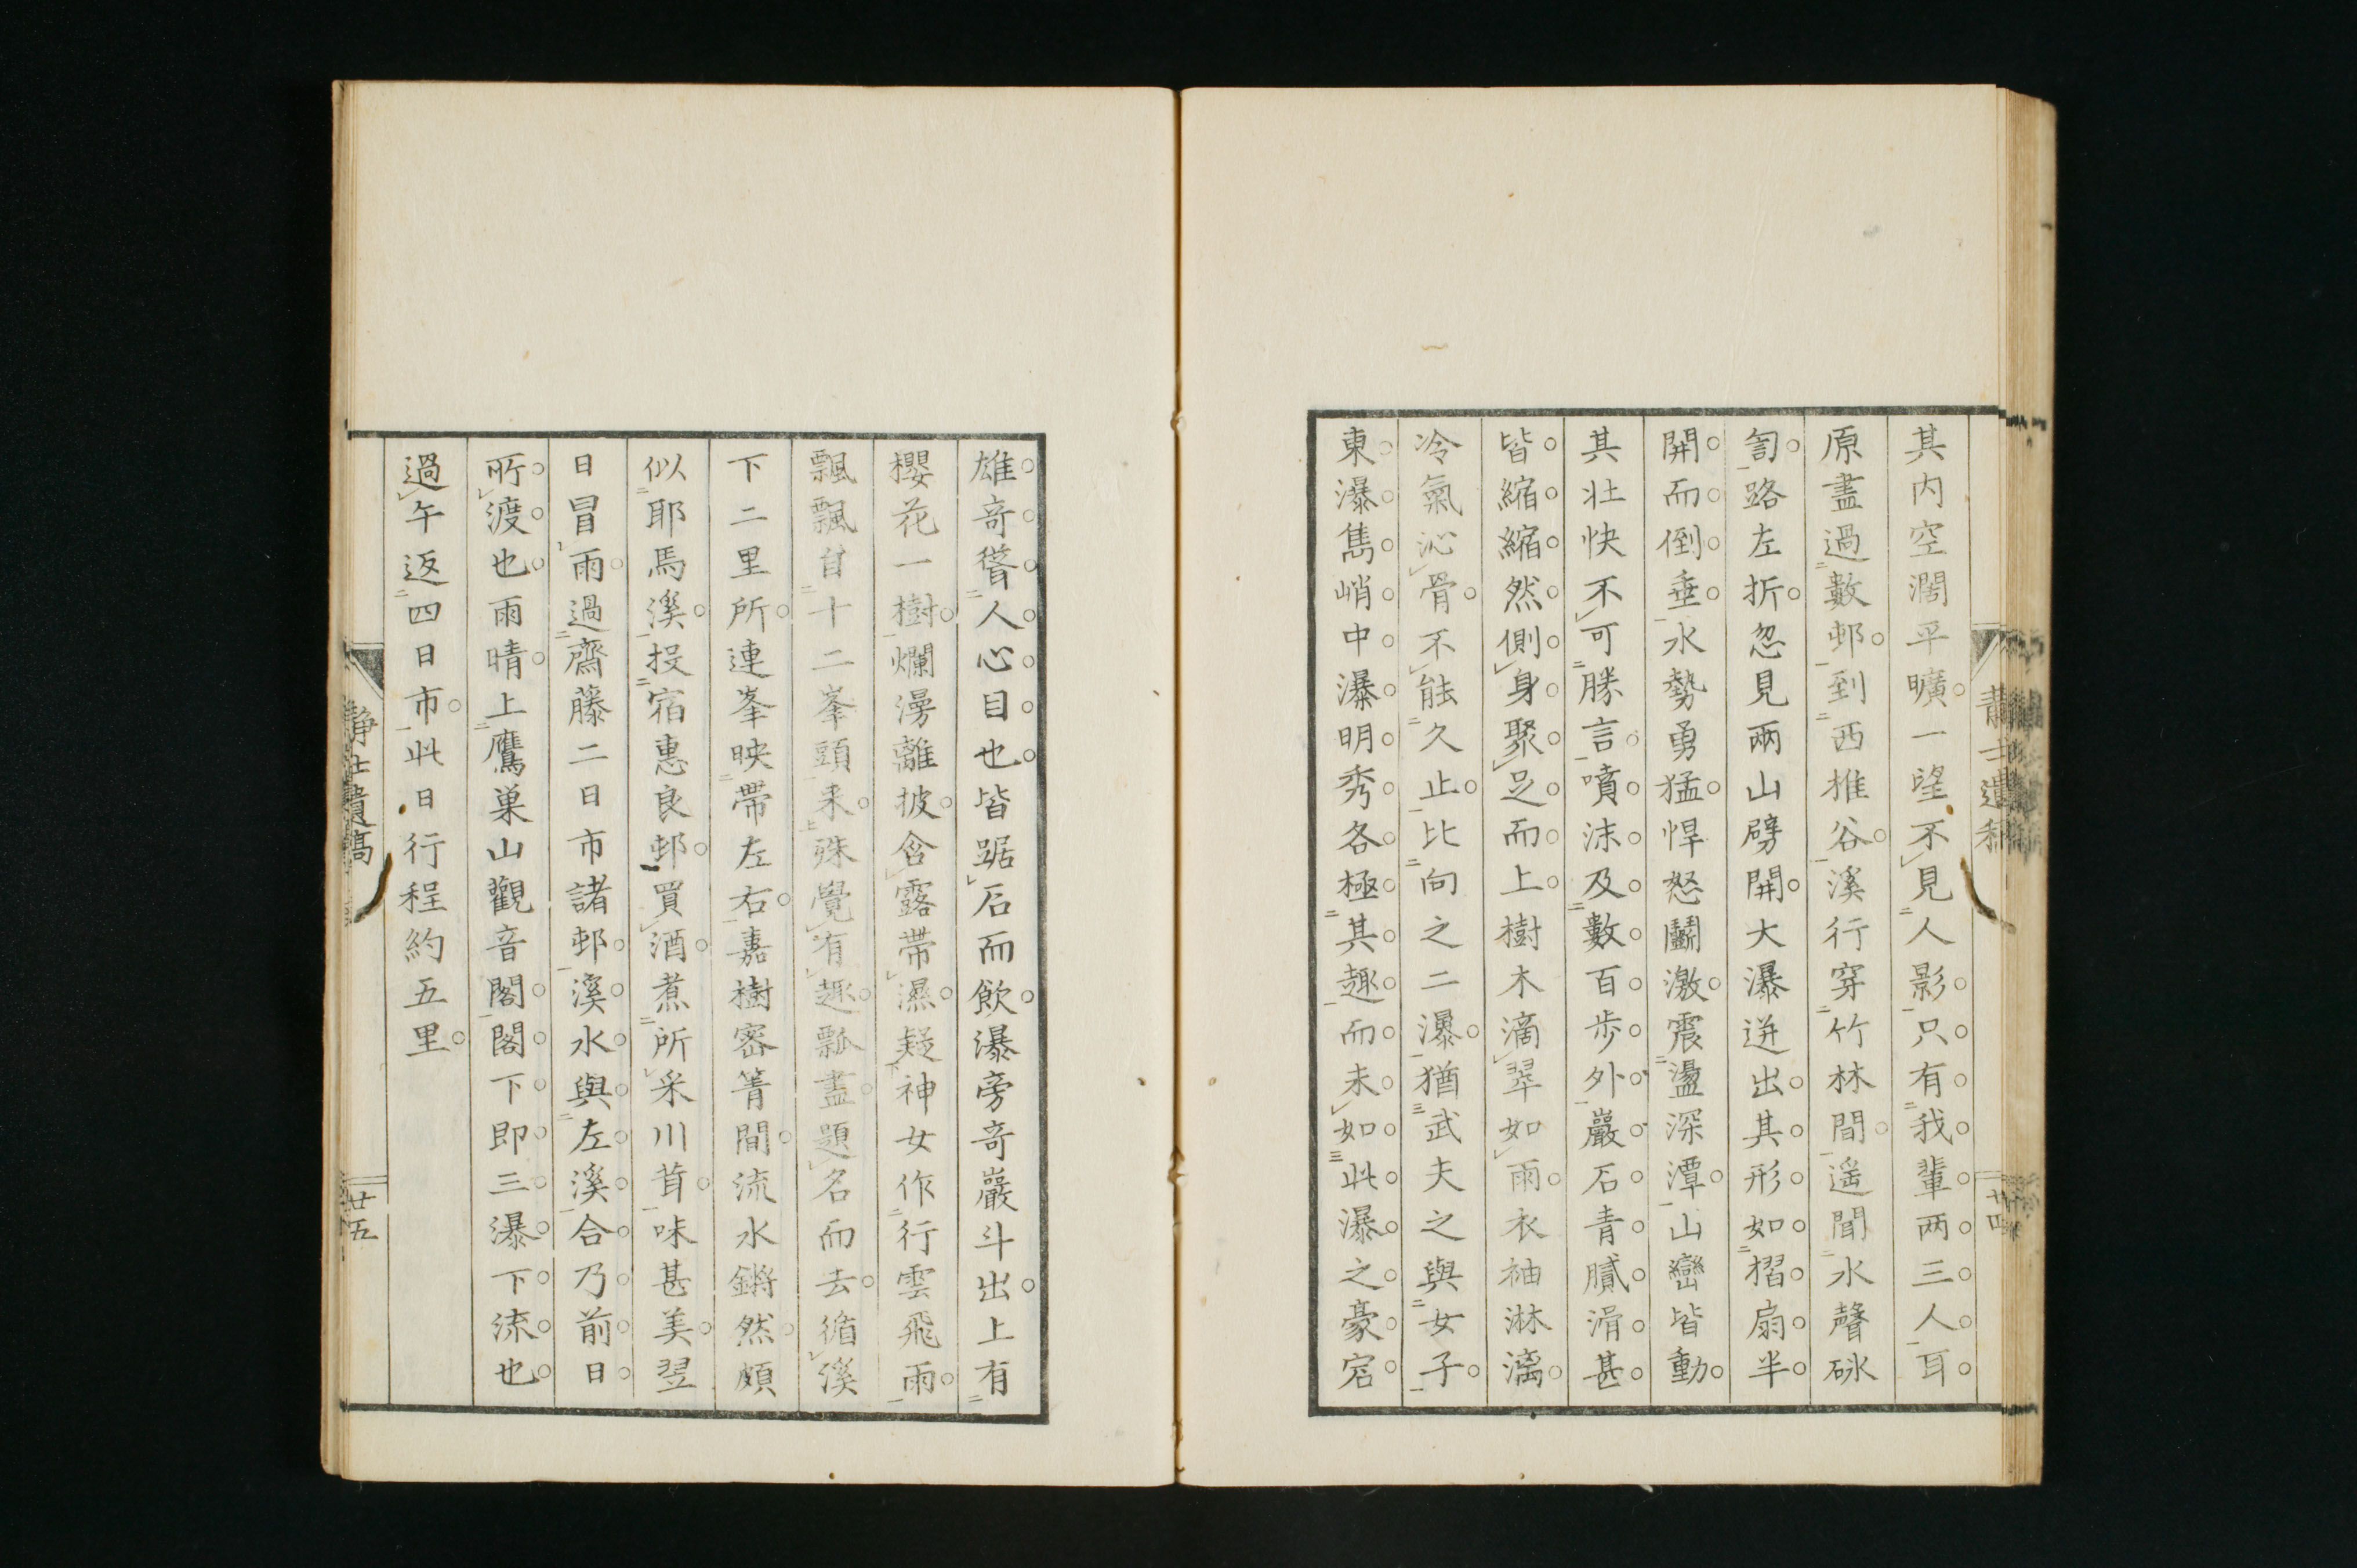 其内空濶平曠一望不見人影只有我輩两三人耳
原盡過數邨到西推谷溪行穿竹林間遥聞水聲砅
訇路左折忽見兩山劈開大瀑迸出其形如摺扇半
開而倒垂水勢勇猛悍怒鬭激震盪深潭山巒皆動
其壮快不可勝言噴沫及數百歩外巖石青膩滑甚
皆縮縮然側身聚足而上樹木滴翠如雨衣袖淋漓
冷氣沁骨不能久止比向之二瀑猶武夫之與女子
東瀑雋峭中瀑明秀各極其趣而未如此瀑之豪宕
靜士遺稿
廿四
雄竒聳人心目也皆踞石而飲瀑旁竒巖斗出上有
櫻花一樹爛漫離披含露帯濕疑神女作行雲飛雨
飄飄自十二峯頭来殊覺有趣瓢盡題名而去循溪
下二里所連峯映帶左右嘉樹密箐間流水鏘然頗
似耶馬溪投宿惠良邨買酒煮所采川茸味甚美翌
日冒雨過齋藤二日市諸邨溪水與左溪合乃前日
所渡也雨晴上鷹巣山觀音閣閣下即三瀑下流也
過午返四日市此日行程約五里
靜士遺稿
廿五